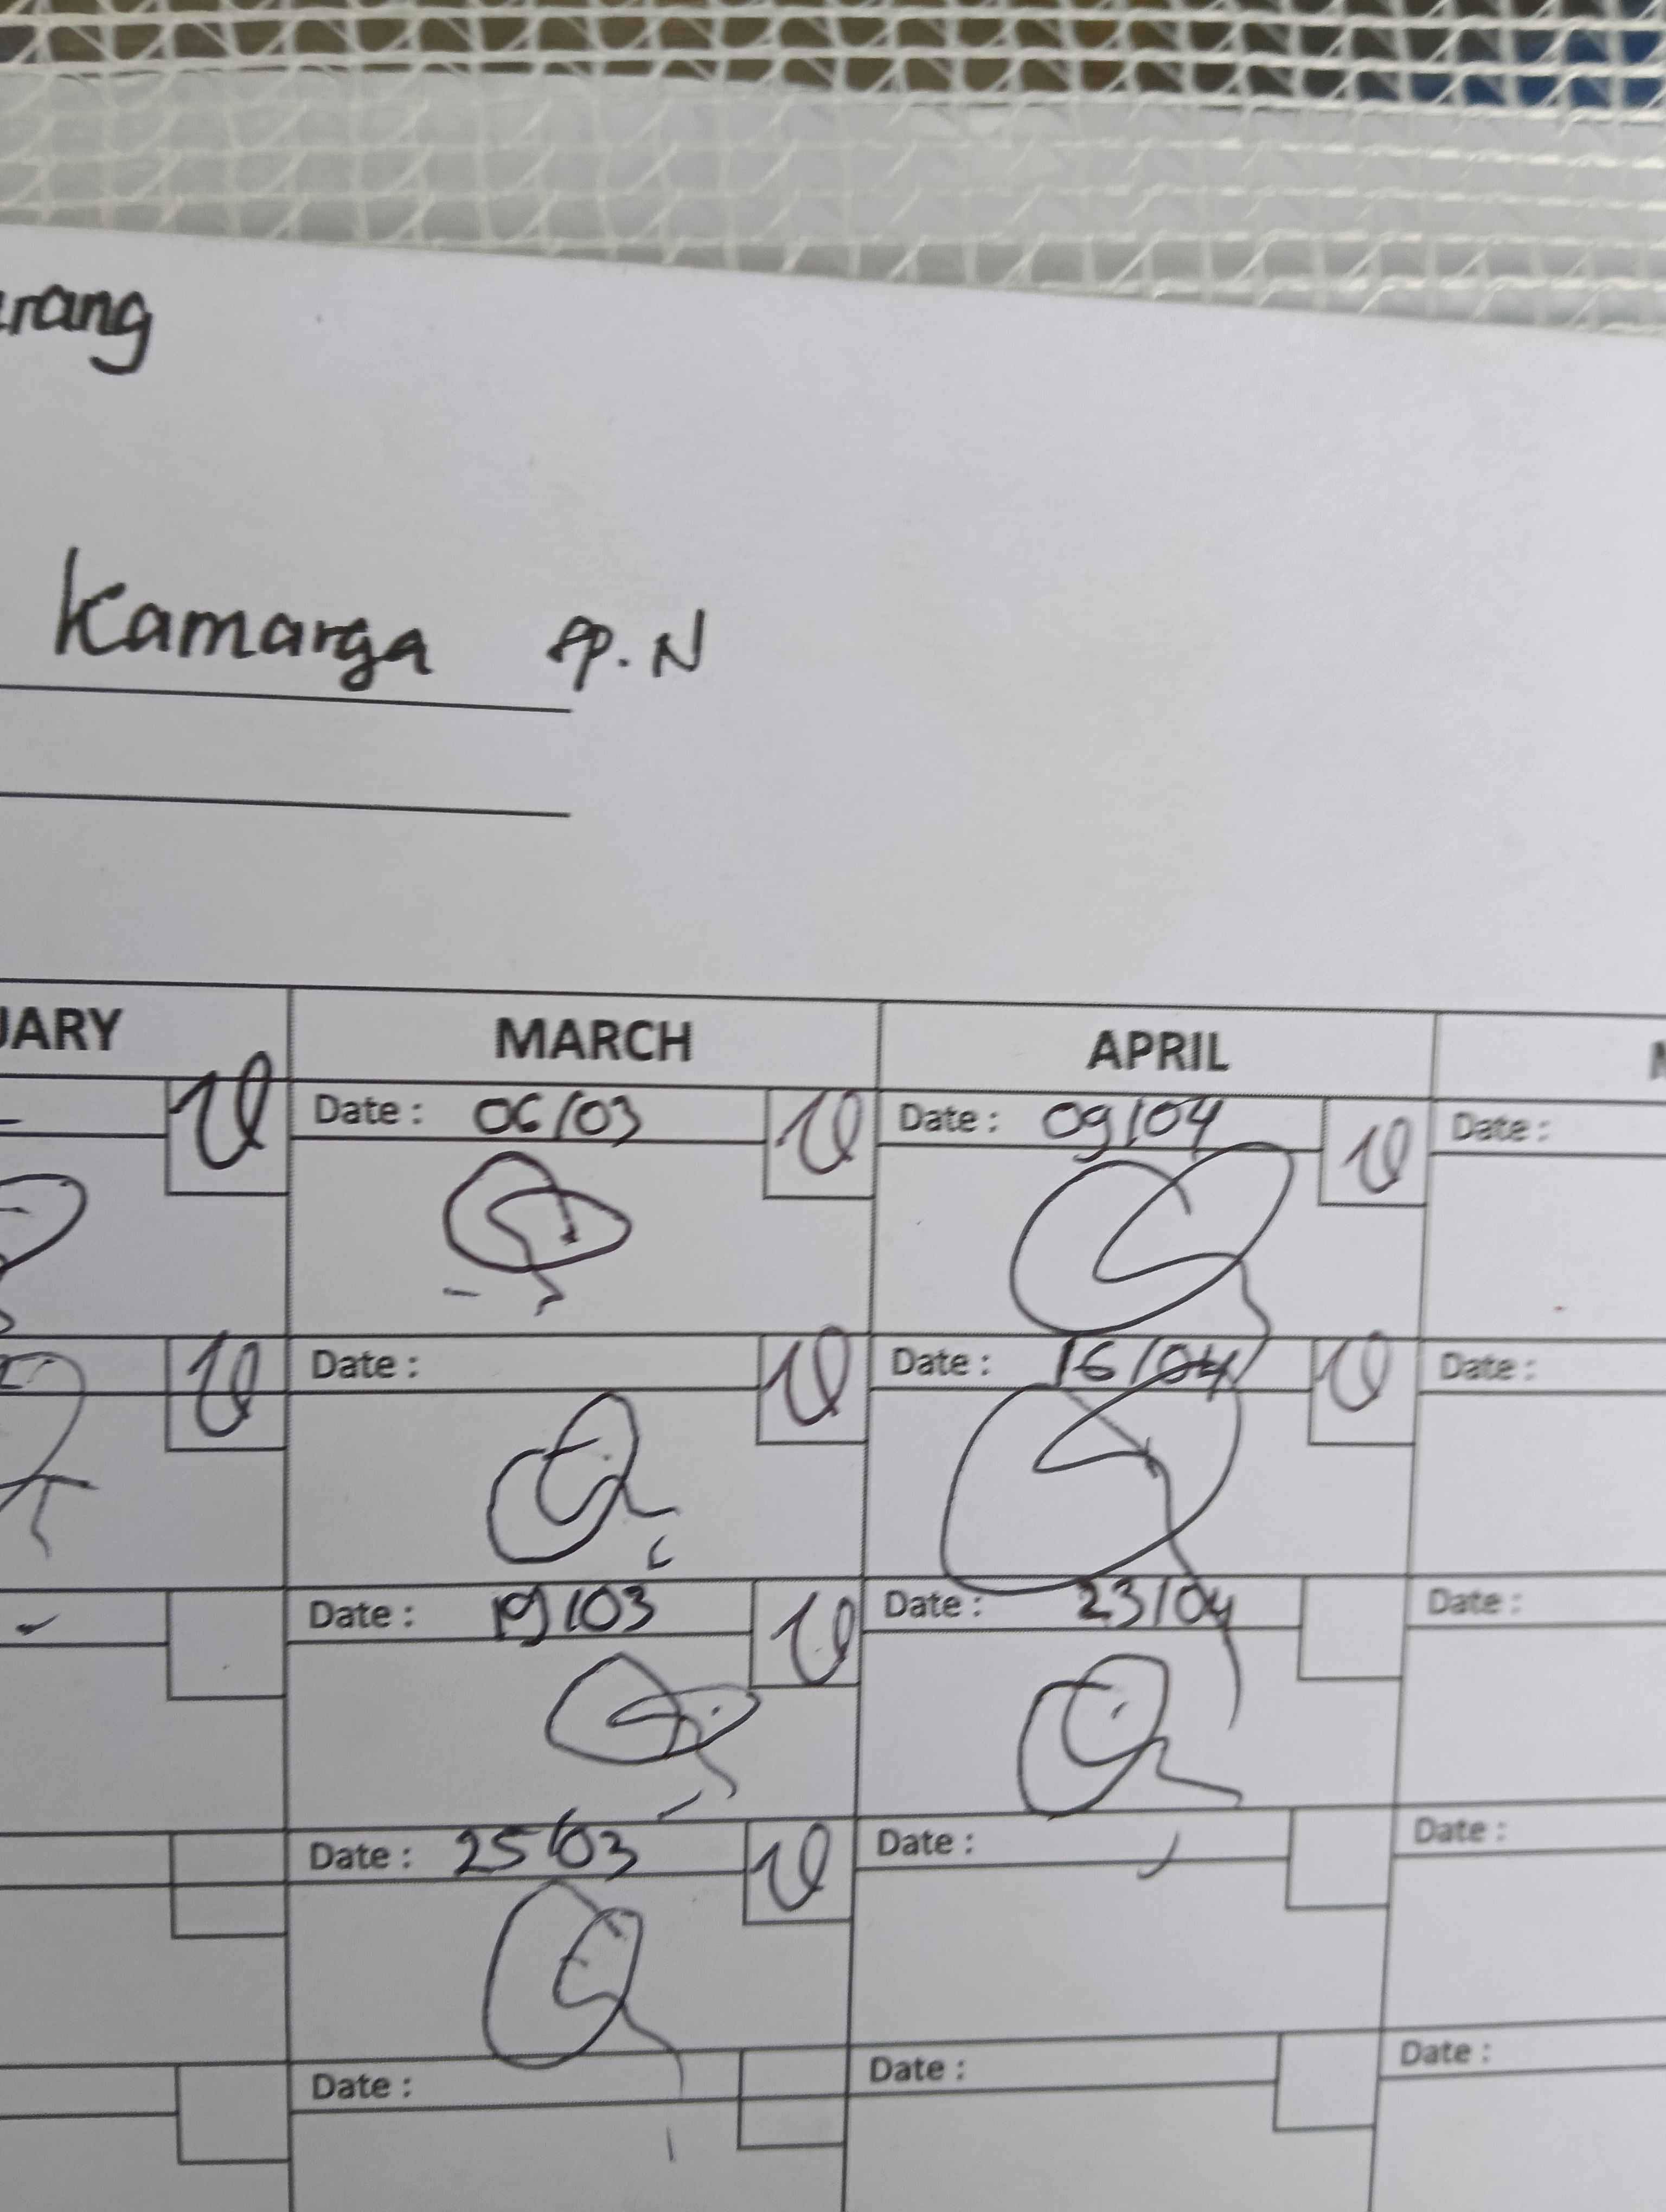 arang
Kamarga sp.N
UARY MARCH APRIL
Date: 06/03 Date: 09/04 Date:
Date: Date: 16/04 Date:
Date: 19/03 Date: 23/04 Date:
Date: 25/03 Date: Date:
Date: Date: Date: